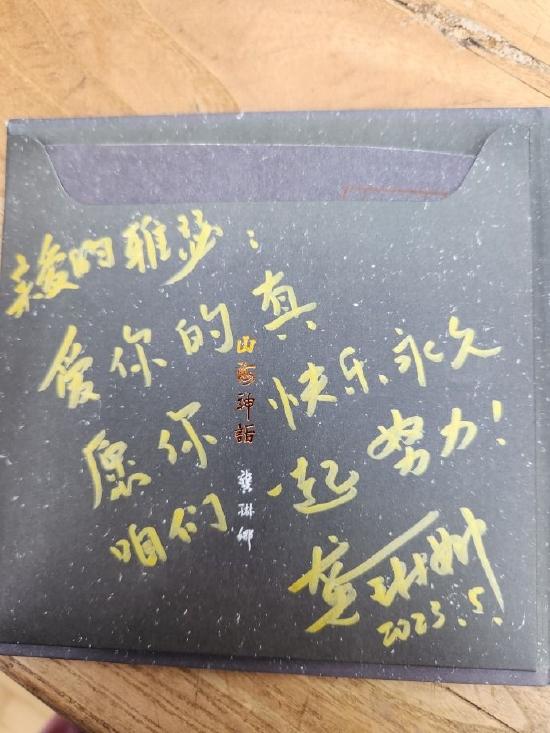 亲爱的雅瑟：
爱你的真
愿你快乐、永久
咱们一起努力！
龚琳娜
2023.5.
山海神话
龚琳娜